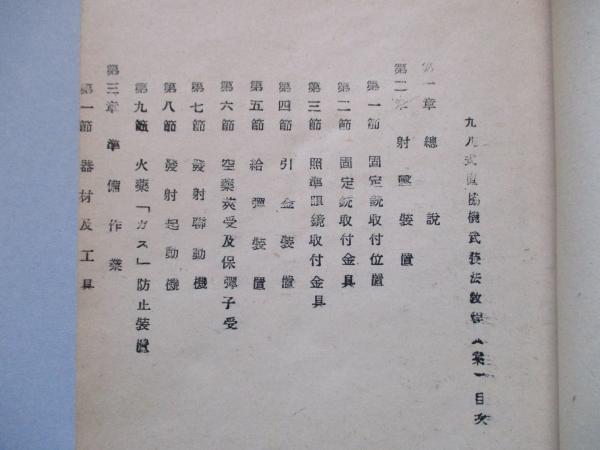 九八式直協機武装法教程(案) 目次
第一章 總說
第二章 射擊裝置
第一節 固定銃取付位置
第二節 固定銃取付金具
第三節 照準眼鏡取付金具
第四節 引金裝置
第五節 給彈裝置
第六節 空藥莢受及保彈子受
第七節 發射聯動機
第八節 發射起動機
第九節 火藥「ガス」防止裝置
第三章 準備作業
第一節 器材及工具